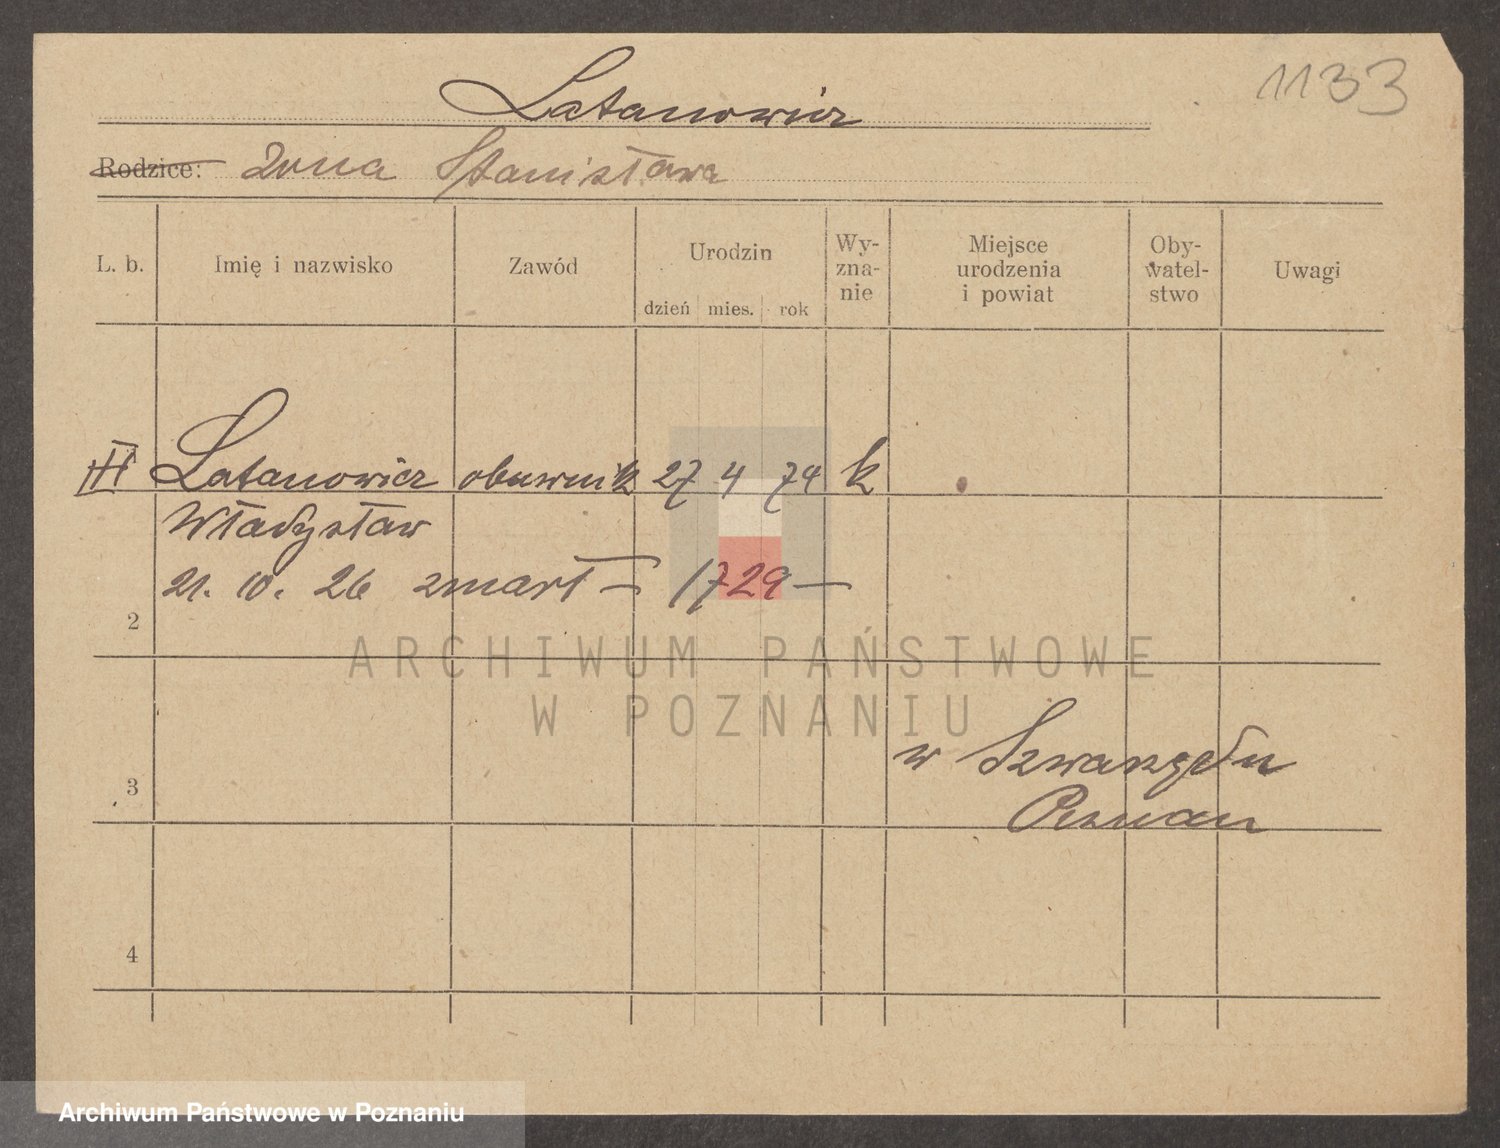 1133
Latanowicz
Rodzice: żona Stanisława
L. b. Imię i nazwisko Zawód Urodzin dzień mies. rok Wy-zna-nie Miejsce urodzenia i powiat Oby-watel-stwo Uwagi
Latanowicz obuwnik 27 4 74 k
Władysław
21. 10. 26 zmarł — 1729 —
2
ARCHIWUM PAŃSTWOWE
W POZNANIU
w
3
Poznan
4
Archiwum Państwowe w Poznaniu